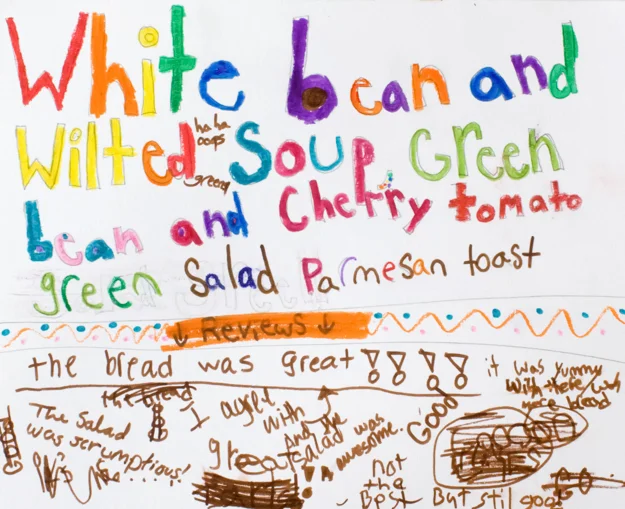 White bean and
Wilted haha oops green Soup Green
bean and Cherry tomato
green Salad Parmesan toast
↓ Reviews ↓
the bread was great!!!!
it was yummy
The Salad
was scrumptious!
I agree
with
And the
salad was
awesome.
great
Good
not
the
Best
But still good